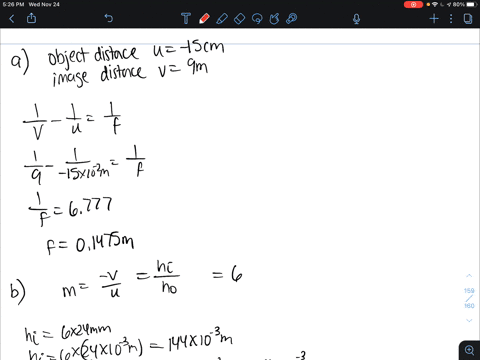 5:26 PM Wed Nov 24
80%
a) object distance u = -15cm
image distance v = 9m
1/v - 1/u = 1/f
1/9 - 1/-15x10⁻²m = 1/f
1/f = 6.777
f = 0.1475m
b) m = -v/u = hi/ho = 6
hi = 6x24mm
hi = 6x(24x10⁻³m) = 144x10⁻³m
159 / 160